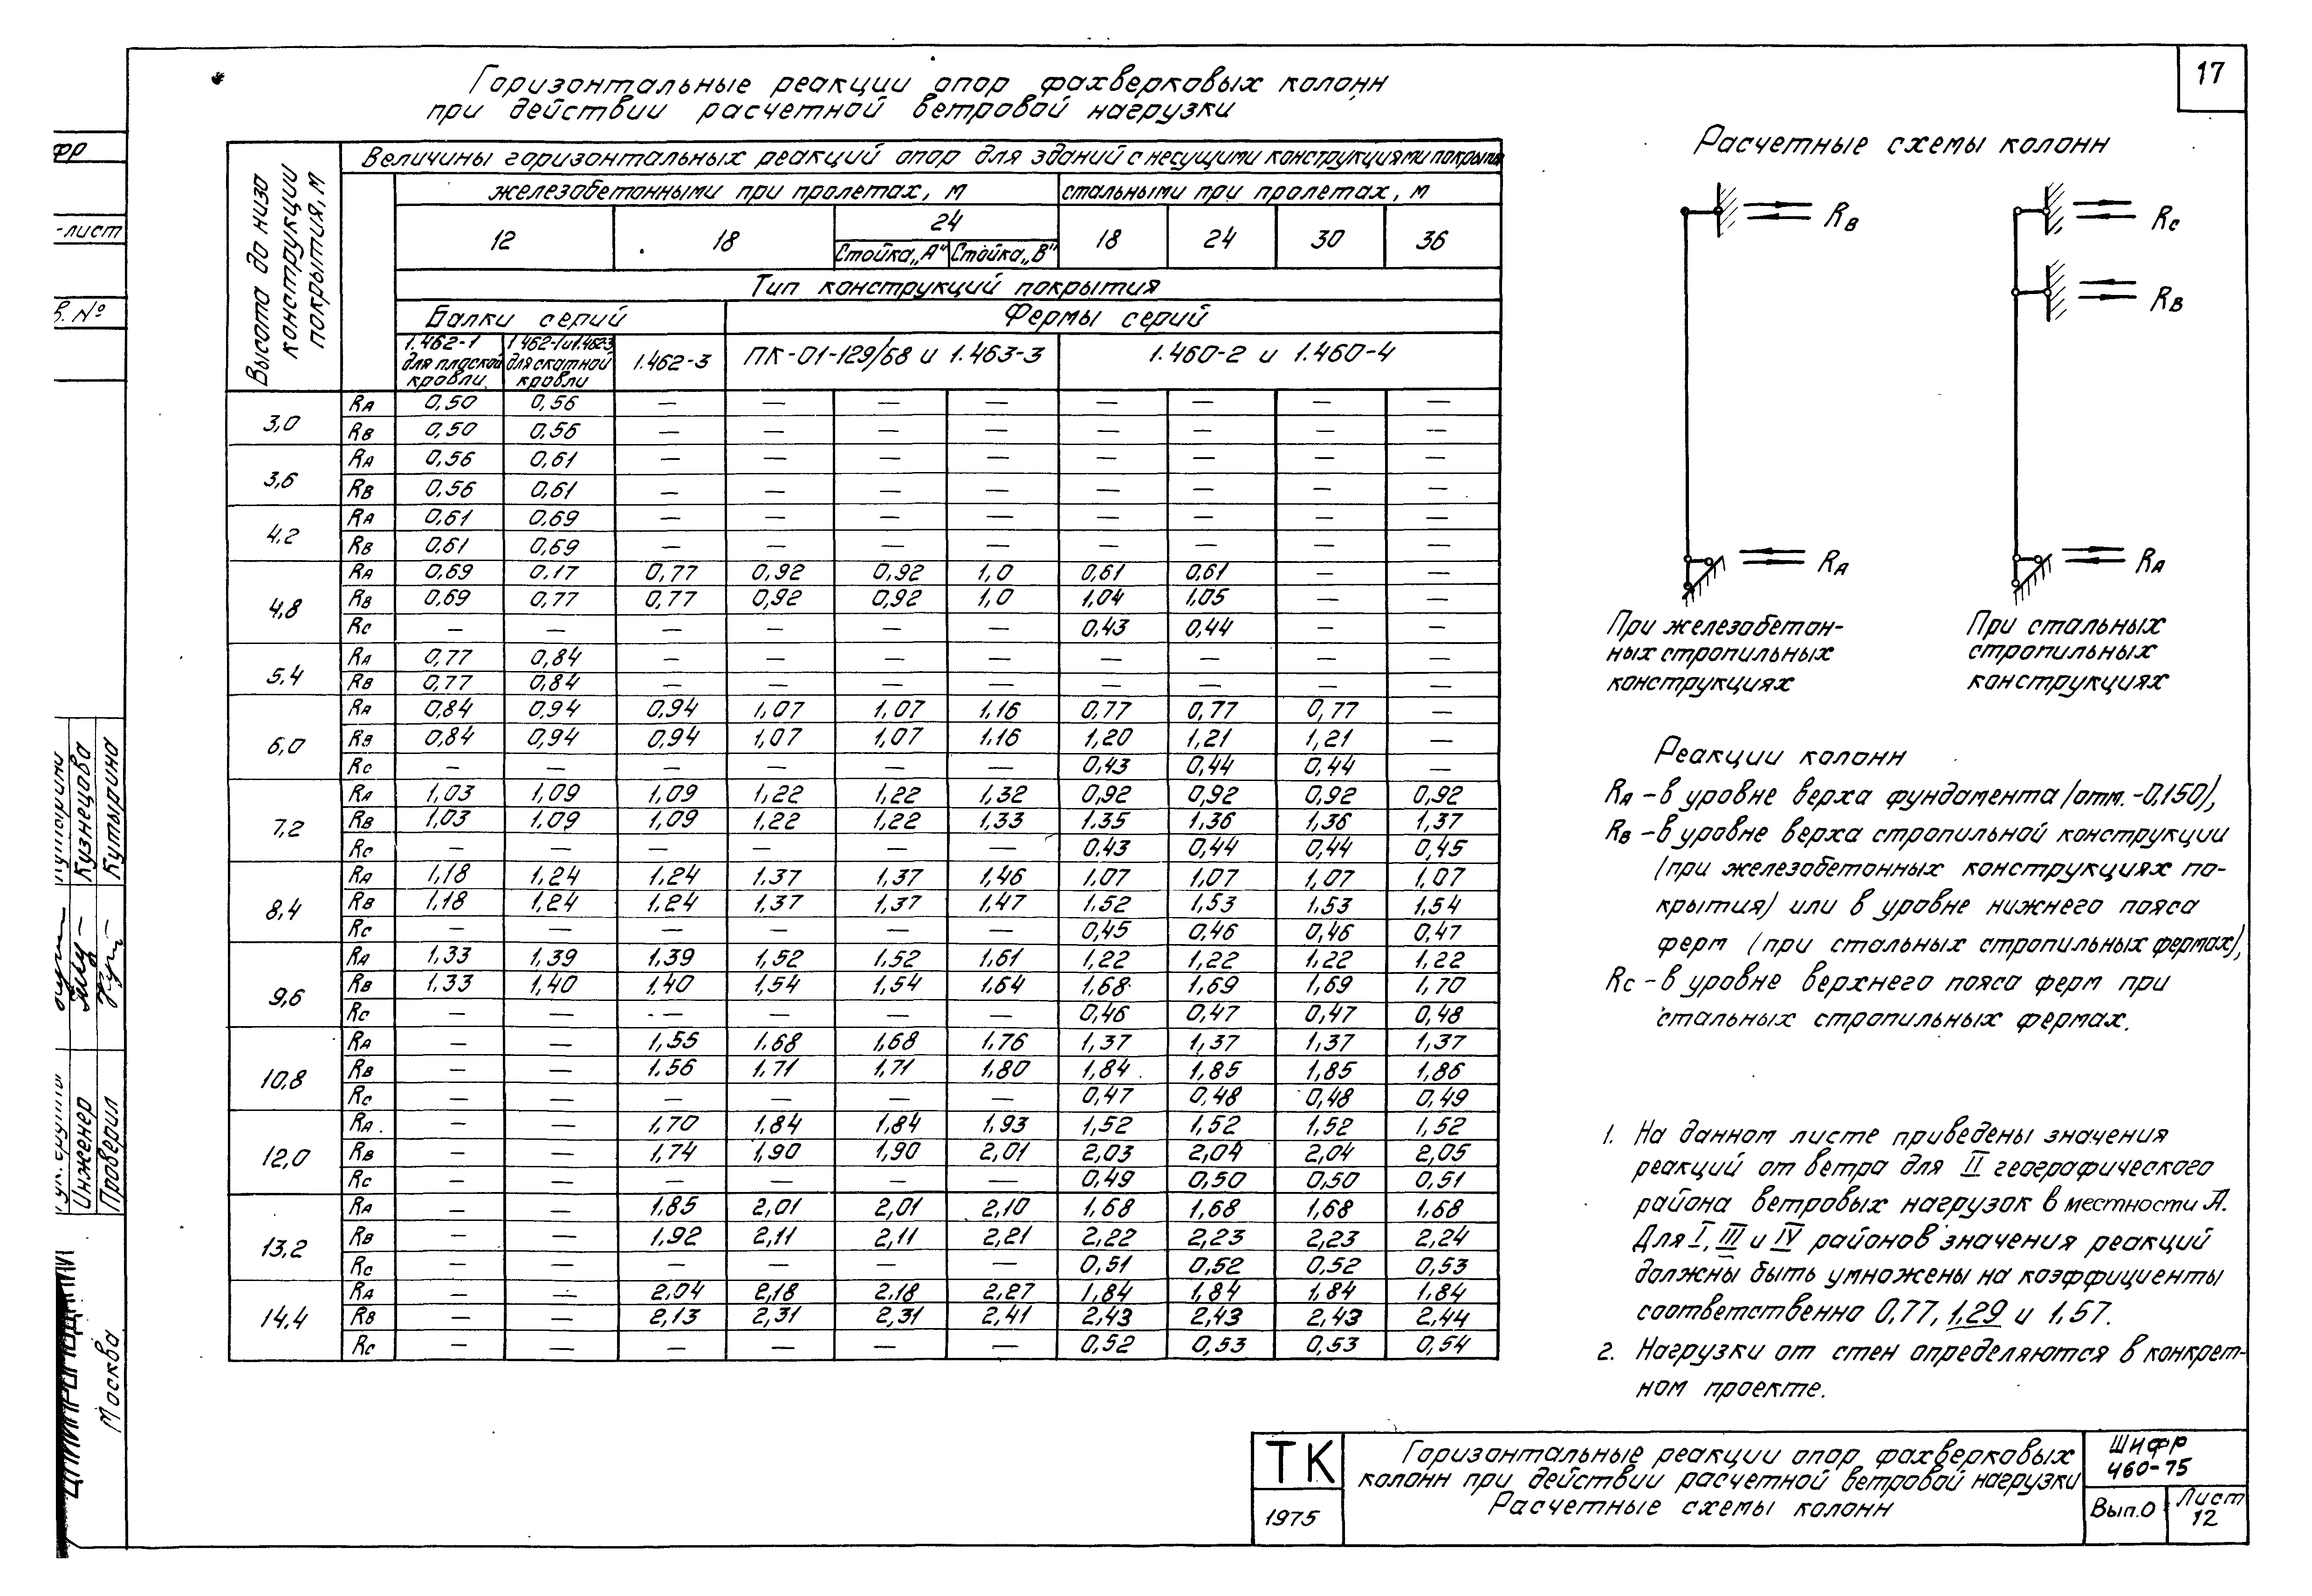 17
Горизонтальные реакции опор фахверковых колонн
при действии расчетной ветровой нагрузки
Высота до низа конструкции покрытия, м
Величины горизонтальных реакций опор для зданий с несущими конструкциями покрытия
железобетонными при пролетах, м | стальными при пролетах, м
12 | 18 | 24 | 18 | 24 | 30 | 36
Стойка „А" | Стойка „В"
Тип конструкций покрытия
Балки серий | Фермы серий
1.462-1 для плоской кровли | 1.462-1 и 1.462-3 для скатной кровли | 1.462-3 | ПК-01-129/68 и 1.463-3 | 1.460-2 и 1.460-4
3,0 | RА | 0,50 | 0,56 | — | — | — | — | — | — | — | —
RВ | 0,50 | 0.56 | — | — | — | — | — | — | — | —
3,6 | RА | 0,56 | 0,61 | — | — | — | — | — | — | — | —
RВ | 0,56 | 0,61 | — | — | — | — | — | — | — | —
4.2 | RА | 0,61 | 0,69 | — | — | — | — | — | — | — | —
RВ | 0,61 | 0,69 | — | — | — | — | — | — | — | —
4,8 | RА | 0,69 | 0.17 | 0,77 | 0,92 | 0,92 | 1,0 | 0,61 | 0,61 | — | —
RВ | 0,69 | 0,77 | 0,77 | 0,92 | 0,92 | 1,0 | 1,04 | 1,05 | — | —
RС | — | — | — | — | — | — | 0,43 | 0,44 | — | —
5.4 | RА | 0,77 | 0,84 | — | — | — | — | — | — | — | —
RВ | 0,77 | 0,84 | — | — | — | — | — | — | — | —
6,0 | RА | 0,84 | 0,94 | 0,94 | 1,07 | 1,07 | 1,16 | 0,77 | 0,77 | 0,77 | —
RВ | 0,84 | 0,94 | 0,94 | 1,07 | 1,07 | 1.16 | 1,20 | 1,21 | 1,21 | —
RС | — | — | — | — | — | — | 0,43 | 0,44 | 0,44 | —
7,2 | RА | 1,03 | 1,09 | 1,09 | 1,22 | 1,22 | 1,32 | 0,92 | 0,92 | 0,92 | 0,92
RВ | 1,03 | 1.09 | 1,09 | 1.22 | 1,22 | 1,33 | 1.35 | 1,36 | 1,36 | 1,37
RС | — | — | — | — | — | — | 0.43 | 0,44 | 0,44 | 0,45
8,4 | RА | 1,18 | 1,24 | 1.24 | 1.37 | 1,37 | 1,46 | 1.07 | 1,07 | 1,07 | 1,07
RВ | 1,18 | 1,24 | 1.24 | 1,37 | 1,37 | 1,47 | 1.52 | 1,53 | 1.53 | 1,54
RС | — | — | — | — | — | — | 0,45 | 0,46 | 0,46 | 0,47
9,6 | RА | 1.33 | 1,39 | 1.39 | 1,52 | 1.52 | 1,61 | 1,22 | 1,22 | 1,22 | 1,22
RВ | 1.33 | 1,40 | 1.40 | 1,54 | 1,54 | 1.64 | 1,68 | 1,69 | 1,69 | 1,70
RС | — | — | — | — | — | — | 0,46 | 0,47 | 0,47 | 0,48
10,8 | RА | — | — | 1,55 | 1.68 | 1,68 | 1.76 | 1,37 | 1,37 | 1,37 | 1,37
RВ | — | — | 1.56 | 1.71 | 1,71 | 1,80 | 1,84 | 1,85 | 1,85 | 1,86
RС | — | — | — | — | — | — | 0,47 | 0,48 | 0,48 | 0,49
12,0 | RА | — | — | 1,70 | 1,84 | 1,84 | 1,93 | 1,52 | 1,52 | 1,52 | 1,52
RВ | — | — | 1,74 | 1,90 | 1,90 | 2,01 | 2,03 | 2,04 | 2,04 | 2,05
RС | — | — | — | — | — | — | 0,49 | 0,50 | 0,50 | 0,51
13,2 | RА | — | — | 1.85 | 2,01 | 2,01 | 2,10 | 1,68 | 1,68 | 1,68 | 1,68
RВ | — | — | 1,92 | 2,11 | 2,11 | 2,21 | 2,22 | 2,23 | 2,23 | 2,24
RС | — | — | — | — | — | — | 0,51 | 0,52 | 0,52 | 0,53
14,4 | RА | — | — | 2,04 | 2,18 | 2,18 | 2,27 | 1,84 | 1,84 | 1,84 | 1.84
RВ | — | — | 2,13 | 2,31 | 2,31 | 2,41 | 2,43 | 2,43 | 2,43 | 2,44
RС | — | — | — | — | — | — | 0,52 | 0,53 | 0,53 | 0,54
Расчетные схемы колонн
RВ
RА
RС
RВ
RА
При железобетон-
ных стропильных
конструкциях
При стальных
стропильных
конструкциях
Реакции колонн
RА – в уровне верха фундамента (отм. -0,150),
RВ – в уровне верха стропильной конструкции
(при железобетонных конструкциях по-
крытия) или в уровне нижнего пояса
ферм (при стальных стропильных фермах),
RС – в уровне верхнего пояса ферм при
стальных стропильных фермах.
1. На данном листе приведены значения
реакций от ветра для II географического
района ветровых нагрузок в местности А.
Для I, III и IV районов значения реакций
должны быть умножены на коэффициенты
соответственно 0,77, 1,29 и 1,57.
2. Нагрузки от стен определяются в конкрет-
ном проекте.
ТК
1975
Горизонтальные реакции опор фахверковых
колонн при действии расчетной ветровой нагрузки
Расчетные схемы колонн
Шифр
460-75
Вып.0
Лист
12
фр
-лист
в. №
Кузнецова
Кутырина
Инженер
Проверил
Москва